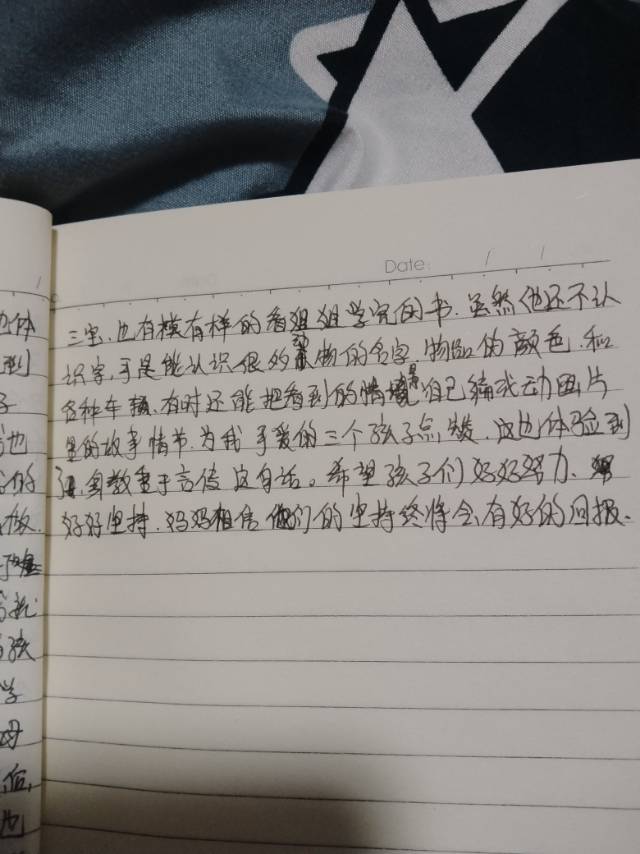 Date: / /
三宝,也有模有样的看姐姐学完的书.虽然他还不认
识字,可是能认识很多动物的名字,物品的颜色,和
各种车辆,有时还能把看到的情景自己编成动画片
里的故事情节.为我可爱的三个孩子点赞,这也体验到
身教重于言传这句话。希望孩子们好好努力、
好好坚持,妈妈相信他们的坚持终将会有好的回报.
体
到
子
也
的
放
孩
学
母
后,
也